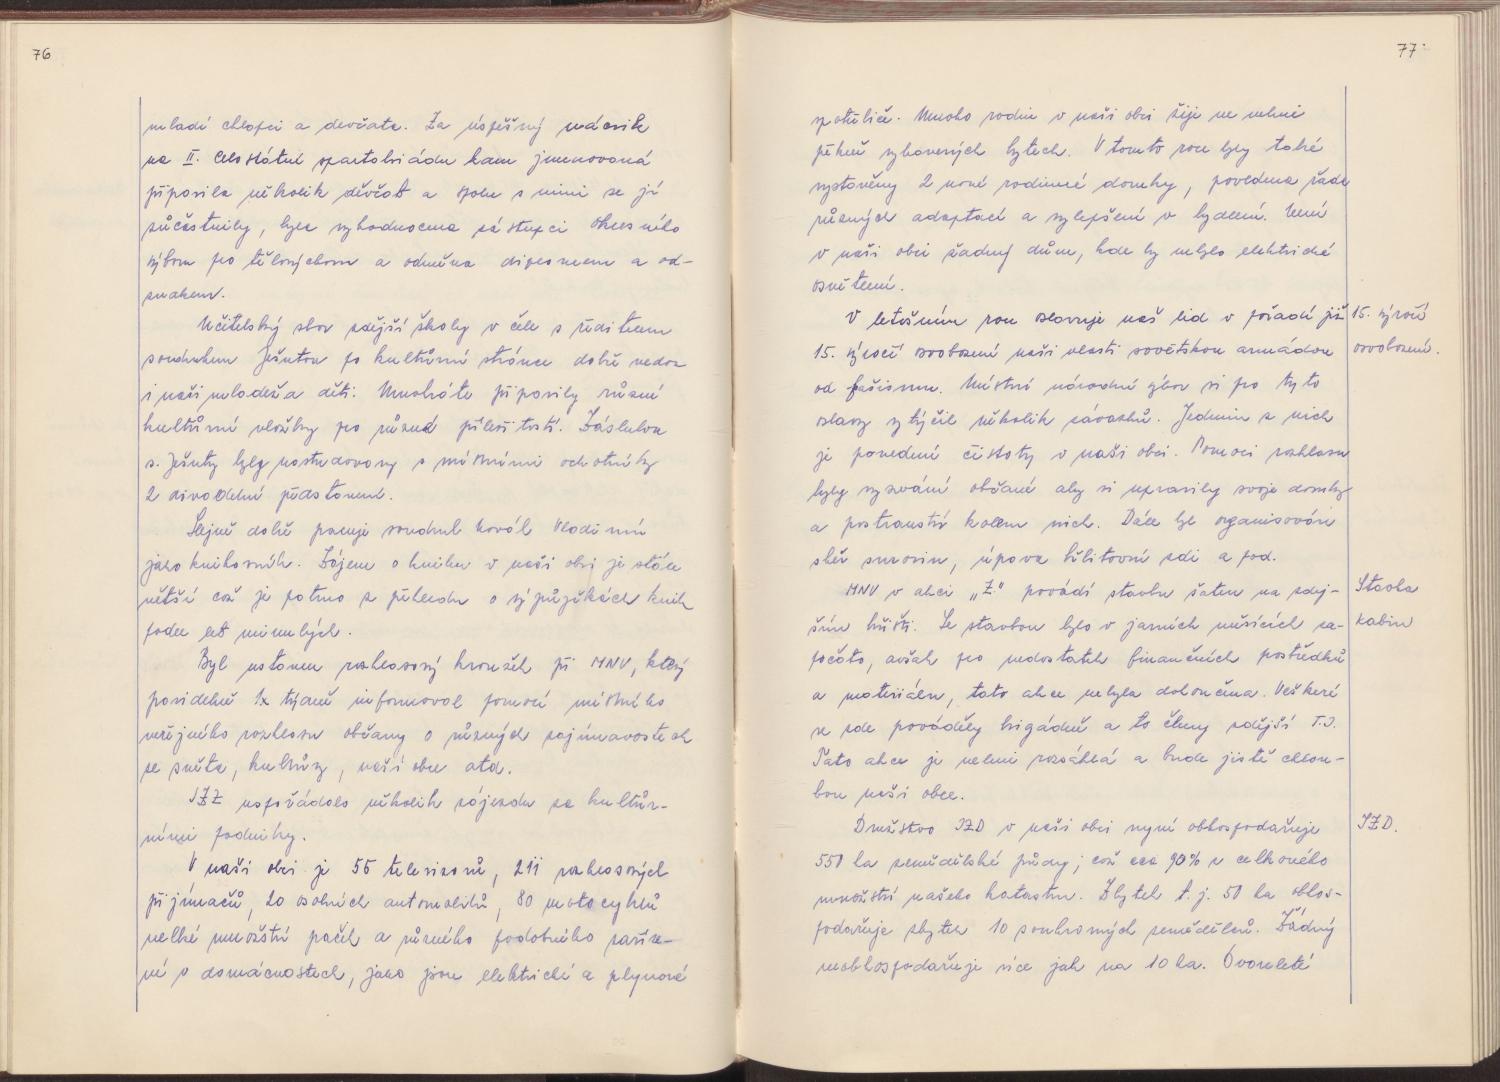 76
mladí chlapci a devčata. Za úspěšný nácvik
na II. Celostátní spartakiádu kam jmenovaná
připravila několik děvčat a spolu s nimi se jí
zúčastnily, byla vyhodnocena zástupci Okresního
výboru pro tělovýchovu a odměna diplomem a od-
znakem.
Učitelský sbor zdejší školy v čele s ředitelem
soudruhem Ješutou po kulturní stránce dobře vedou
i naši mladež a děti. Mnohráte připravily různé
kulturní vložky pro různé příležitosti. Zásluhou
s. Ješuty byly nastudovány s místními ochotníky
2 divadelní představení.
Stejně dobře pracuje soudruh Kovář Vladimír
jako knihovník. Zájem o knihu v naší obci je stále
větší což je patrno z přehledu o výpůjčkách knih
podle let minulých.
Byl ustaven rozhlasový kroužek při MNV, který
pravidelně 1x týdně informoval pomocí místního
veřejného rozhlasu občany o různých zajímavostech
ze světa, kultury, naší obce atd.
JZD uspořádalo několik zájezdu za kultur-
ními podniky.
V naší obci je 55 televizorů, 211 rozhlasových
přijímačů, 20 osobních automobilů, 80 motocyklů
velké množství praček a různého podobného zaříze-
ní v domácnostech, jako jsou elektrické a plynové
77
spotřebiče. Mnoho rodin v naši obci žije ve velmi
pěkně vybavených bytech. V tomto roce byly také
vystavěny 2 nové rodinné domky, provedena řada
různých adaptací a vylepšení v bydlení. Není
v naši obci žadný dům, kde by nebylo elektrické
osvětlení.
V letošním roce oslavuje náš lid v pořadí již
15. výročí
15. výročí osvobození naši vlasti sovětskou armádou
osvobození.
od fašismu. Místní národní výbor si pro tyto
oslavy vytýčil několik závazků. Jedním z nich
je provedení čistoty v naši obci. Pomoci rozhlasu
byly vyzváni občané aby si upravily svoje domky
a prostranství kolem nich. Dále byl organisován
sběr surovin, úprava hřbitovní zdi a pod.
MNV v akci „Z" provádí stavbu šaten na zdej-
Stavba
ším hřišti. Se stavbou bylo v jarních měsících za-
kabin
počato, avšak pro nedostatek finančních prostředků
a materiálu, tato akce nebyla dokončena. Veškeré
se zde prováděly brigádně a to členy zdejší T.J.
Tato akce je velmi rozsáhlá a bude jistě chlou-
bou naší obce.
Družstvo JZD v naší obci nyní obhospodařuje
JZD.
550 ha zemědělské půdy; což cca 90% z celkového
množství našeho katastru. Zbytek t.j. 50 ha obhos-
podařuje zbytek 10 soukromých zemědělců. Žádný
neobhospodařuje více jak na 10 ha. Dvouleté